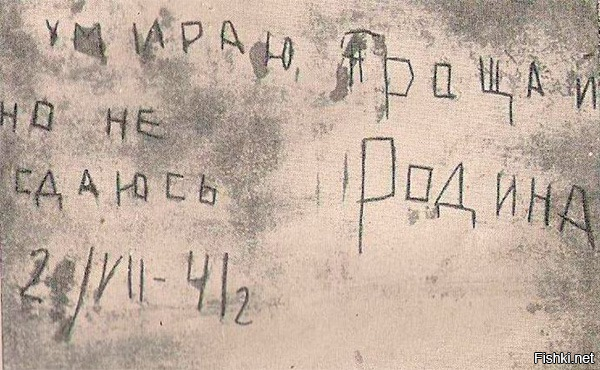 УМИРАЮ,
НО НЕ
СДАЮСЬ
ПРОЩАИ
РОДИНА
20/VII-41г
Fishki.net